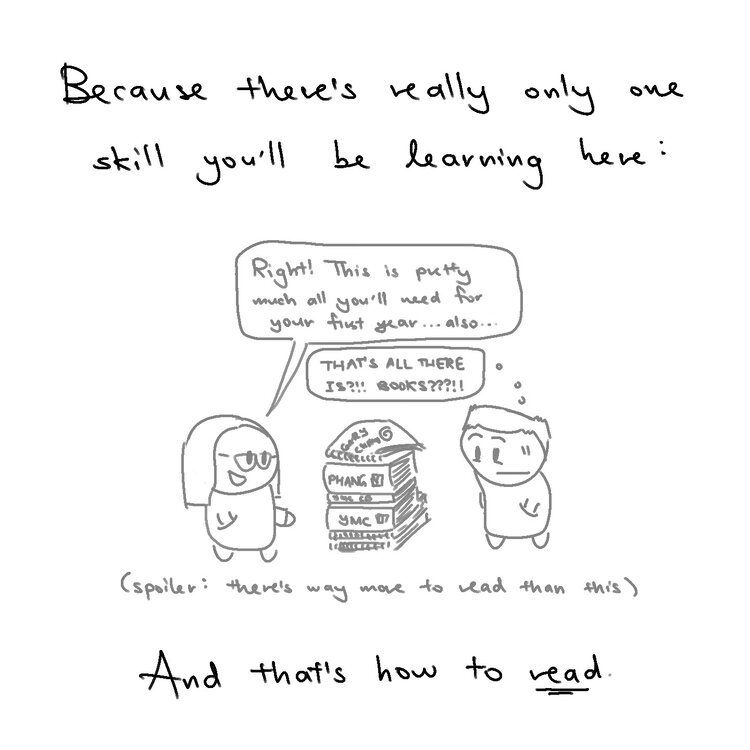 Because there's really only one
skill you'll be learning here:
Right! This is pretty
much all you'll need for
your first year... also...
THAT'S ALL THERE
IS?!! BOOKS???!!
GARY
CHAN
PHANG
YMC
(spoiler: there's way more to read than this)
And that's how to read.